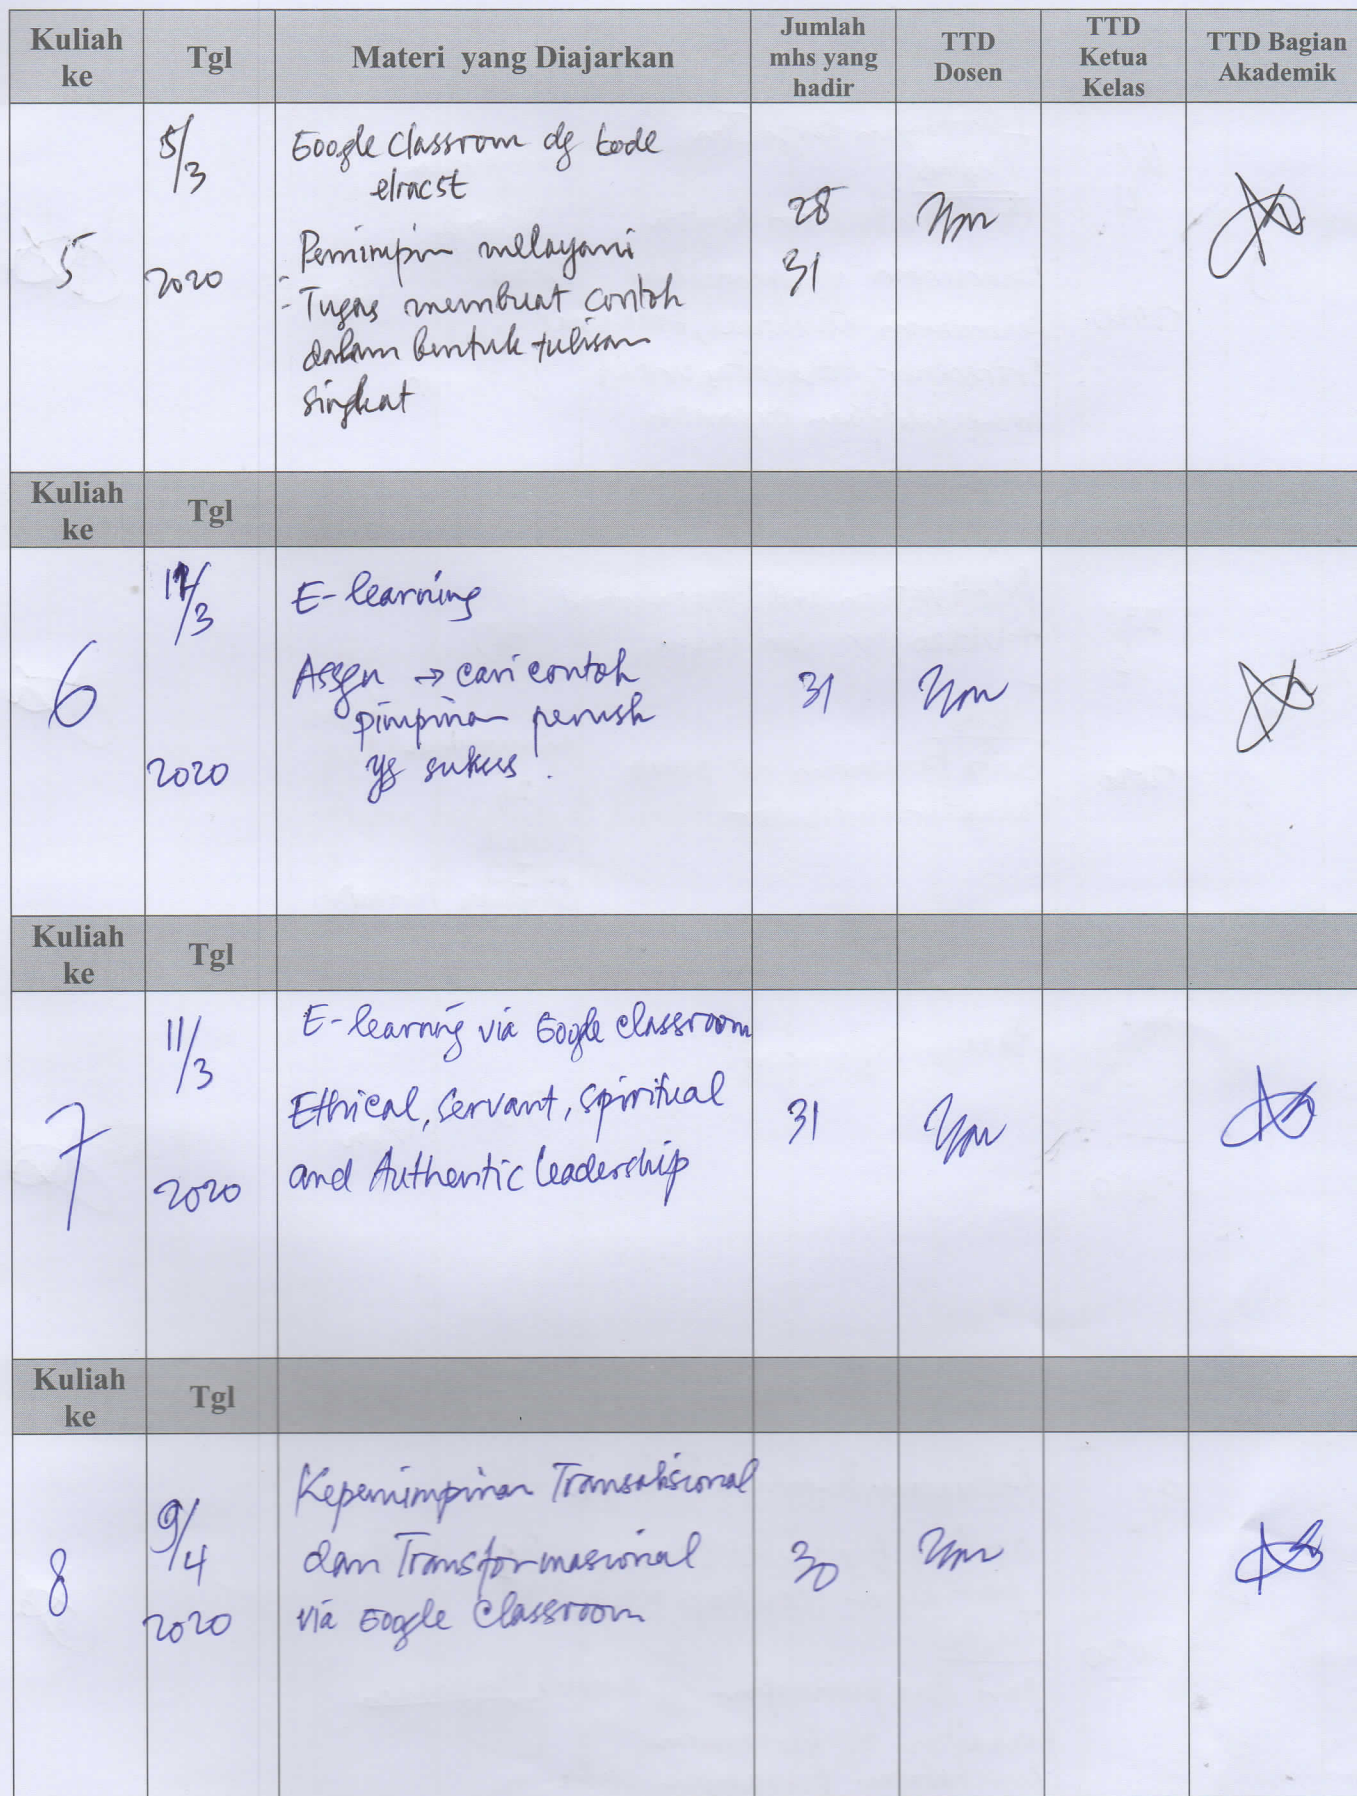 Kuliah ke Tgl Materi yang Diajarkan Jumlah mhs yang hadir TTD Dosen TTD Ketua Kelas TTD Bagian Akademik
5/3
Google Classrom dg kode
elracst
28
5
2020
Pemimpin melayani
31
- Tugas membuat contoh
dalam bentuk tulisan
singkat
Kuliah ke Tgl
/3
E-learning
6
Assgn → cari contoh
31
pimpinan perush
2020
yg sukses.
Kuliah ke Tgl
11/3
E-learning via Google classroom
7
Ethical, Servant, Spiritual
31
2020
and Authentic leadership
Kuliah ke Tgl
Kepemimpinan Transaksional
8
9/4
dan Transformasional
30
2020
via Google Classroom